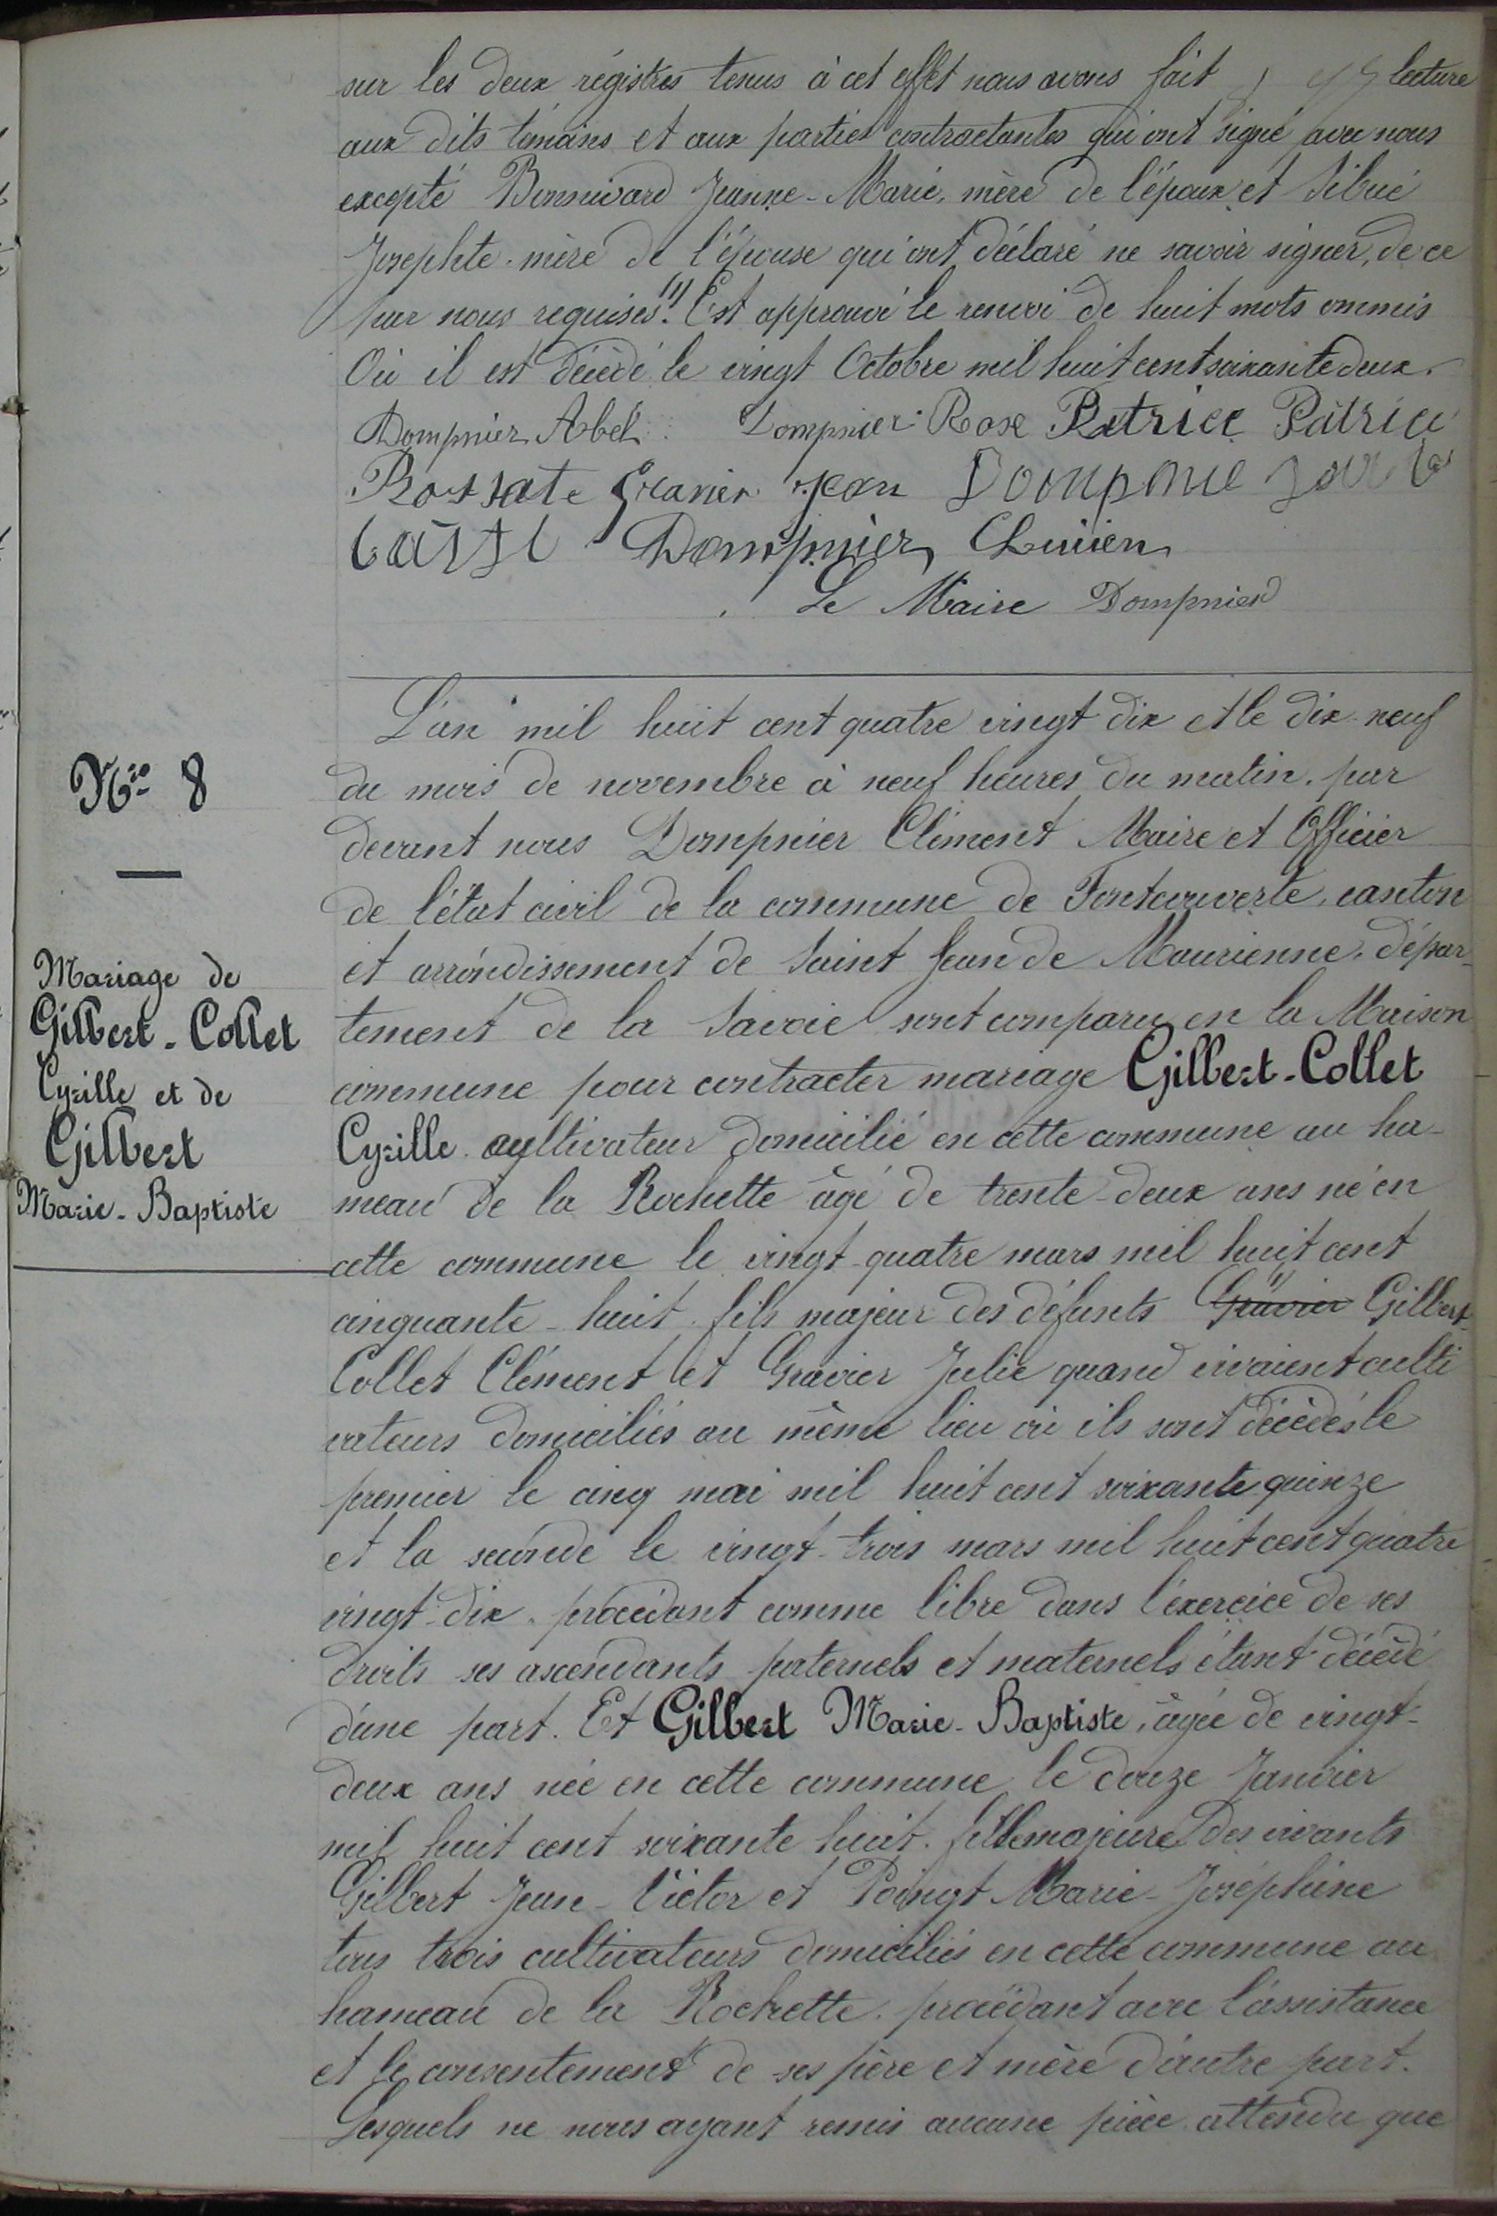 sur les deux régistres tenus à cet effet nous avons fait lecture
aux dits témoins et aux parties contractantes qui ont signé avec nous
excepté Bonnivard Jeanne-Marie, mère de l'époux et Sibué
Josephte mère de l'épouse qui ont déclaré ne savoir signer, de ce
par nous requises. Est approuvé le renvoi de huit mots ommis
Où il est décédé le vingt Octobre mil huit cent soixante deux.
Dompnier Abel Dompnier Rose Patrice Patrice
Rossat Gravier Jean
Dompnier
Le Maire Dompnier
L'an mil huit cent quatre vingt dix et le dix-neuf
du mois de novembre à neuf heures du matin. par
devant nous Dompnier Clément Maire et Officier
de l'état civil de la commune de Fontcouverte, canton
et arrondissement de Saint Jean de Maurienne, dépar-
tement de la Savoie sont comparu en la Maison
commune pour contracter mariage Gilbert-Collet
Cyrille cultivateur domicilié en cette commune au ha-
meau de la Rochette âgé de trente-deux ans né en
cette commune le vingt-quatre mars mil huit cent
cinquante-huit fils majeur des défunts Gravier Gilbert-
Collet Clément et Gravier Julie quand vivaient culti
vateurs domiciliés au même lieu où ils sont décédés le
premier le cinq mai mil huit cent soixante quinze
et la seconde le vingt-trois mars mil huit cent quatre
vingt-dix. procédant comme libre dans l'exercice de ses
droits ses ascendants paternels et maternels étant décédé
d'une part. Et Gilbert Marie-Baptiste, âgée de vingt-
deux ans née en cette commune le douze Janvier
mil huit cent soixante huit. fille majeure des vivants
Gilbert Jean-Victor et Poingt Marie-Joséphine
tous trois cultivateurs domiciliés en cette commune au
hameau de la Rochette. procédant avec l'assistance
et le consentement de ses père et mère d'autre part.
Lesquels ne nous ayant remis aucune pièce attendu que
Nro 8
Mariage de
Gilbert-Collet
Cyrille et de
Gilbert
Marie-Baptiste